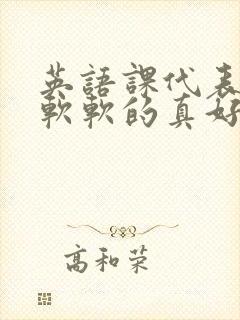 英語課代表
軟軟的真好
高和荣